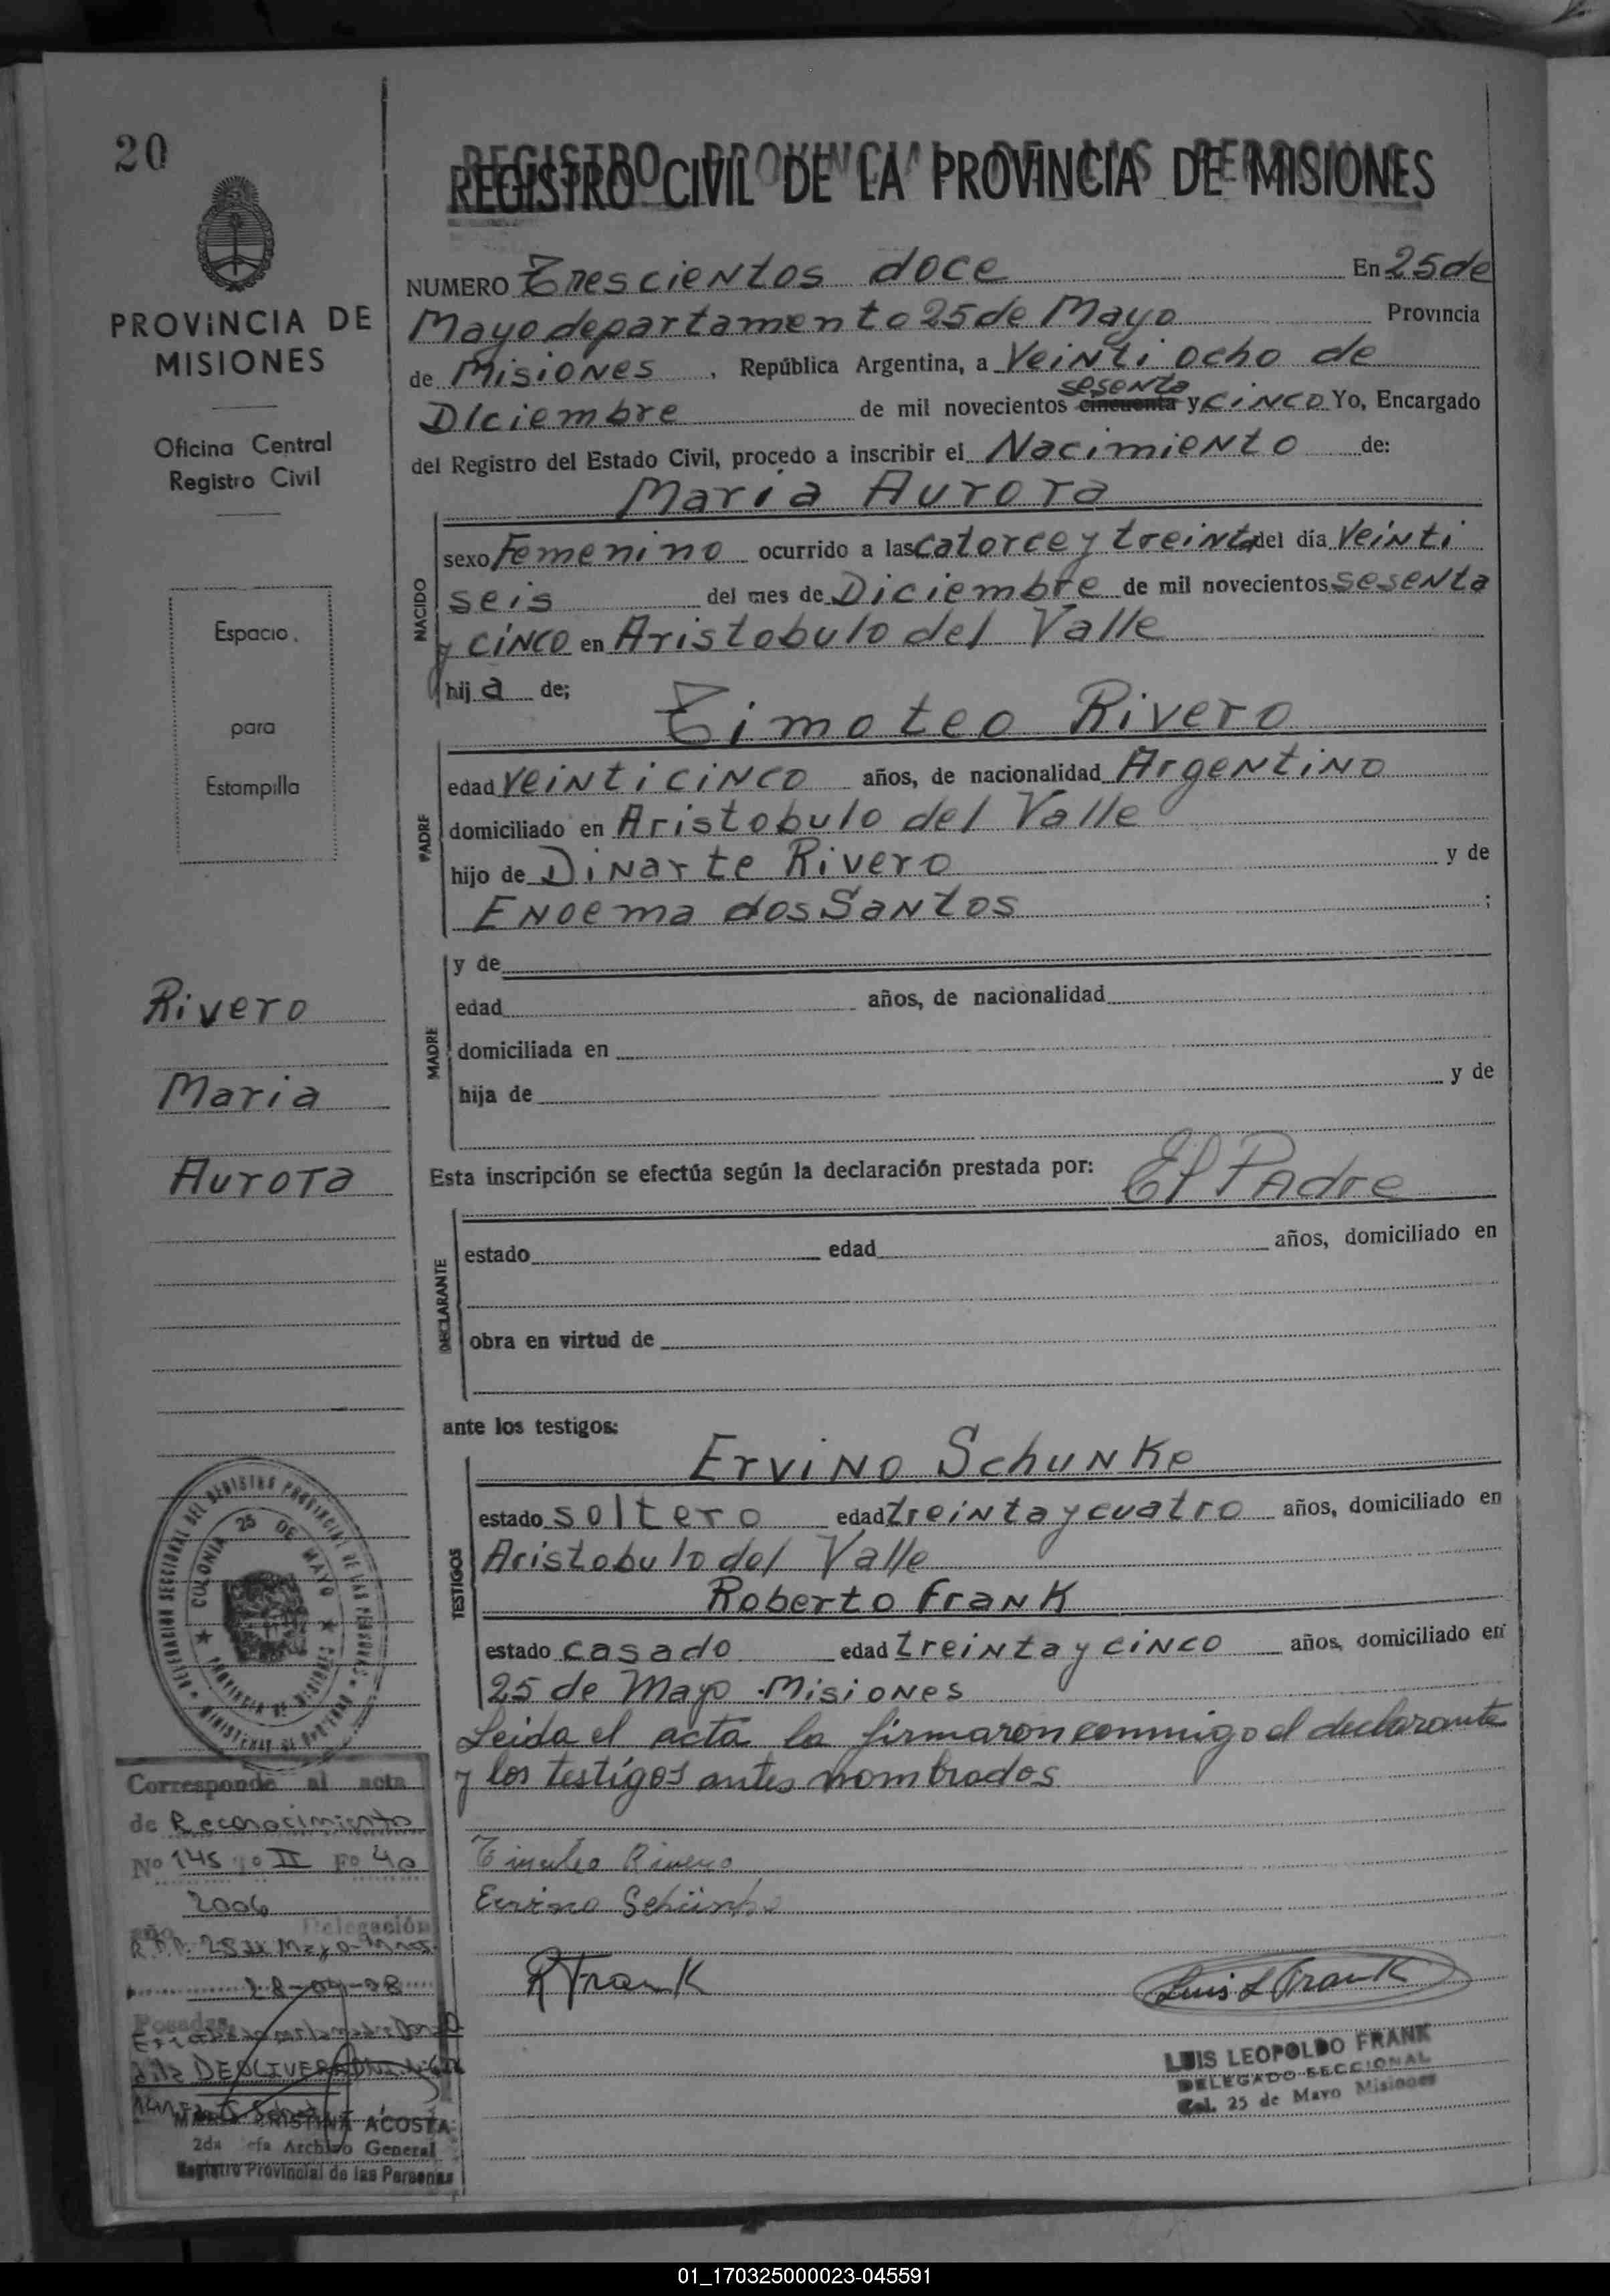 20
PROVINCIA DE
MISIONES
Oficina Central
Registro Civil
Espacio
para
Estampilla
Rivero
Maria
Aurora
REGISTRO CIVIL DE LA PROVINCIA DE MISIONES
NUMERO Trescientos doce En 25 de
Mayo departamento 25 de Mayo Provincia
de Misiones, República Argentina, a Veinti ocho de
sesenta
Diciembre de mil novecientos cincuenta y cinco Yo, Encargado
del Registro del Estado Civil, procedo a inscribir el Nacimiento de:
Maria Aurora
NACIDO
sexo Femenino ocurrido a las catorce y treinta del día Veinti
seis del mes de Diciembre de mil novecientos sesenta
y cinco en Aristobulo del Valle
hija de;
Timoteo Rivero
PADRE
edad veinticinco años, de nacionalidad Argentino
domiciliado en Aristobulo del Valle
hijo de Dinarte Rivero y de
Enoema dos Santos ;
MADRE
y de
edad años, de nacionalidad
domiciliada en
hija de y de
Esta inscripción se efectúa según la declaración prestada por: El Padre
DECLARANTE
estado edad años, domiciliado en
obra en virtud de
ante los testigos:
Ervino Schunke
TESTIGOS
estado soltero edad treinta y cuatro años, domiciliado en
Aristobulo del Valle
Roberto Frank
estado casado edad treinta y cinco años, domiciliado en
25 de Mayo Misiones
Leida el acta la firmaron conmigo el declarante
y los testigos antes nombrados
Timoteo Rivero
Ervino Schünke
R Frank
Luis L Frank
LUIS LEOPOLDO FRANK
DELEGADO SECCIONAL
Col. 25 de Mayo Misiones
DELEGACION SECCIONAL DEL REGISTRO PROVINCIAL DE LAS PERSONAS
COLONIA 25 DE MAYO
PROVINCIA DE MISIONES
MINISTERIO DE GOBIERNO
Corresponde al acta
de Reconocimiento
Nº 145 Tº II Fº 40
año 2006 Delegación
25 de Mayo
Posadas, 28-04-08
MARIA CRISTINA ACOSTA
2da Jefa Archivo General
Registro Provincial de las Personas
01_170325000023-045591